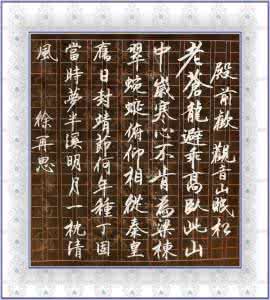 殿前歡 觀音山眠松
老蒼龍避乖高臥此山
中歲寒心不肯為梁棟
翠蜿蜒俯仰相從秦皇
舊日封靖節何年種丁固
當時夢半溪明月一枕清
風 徐再思